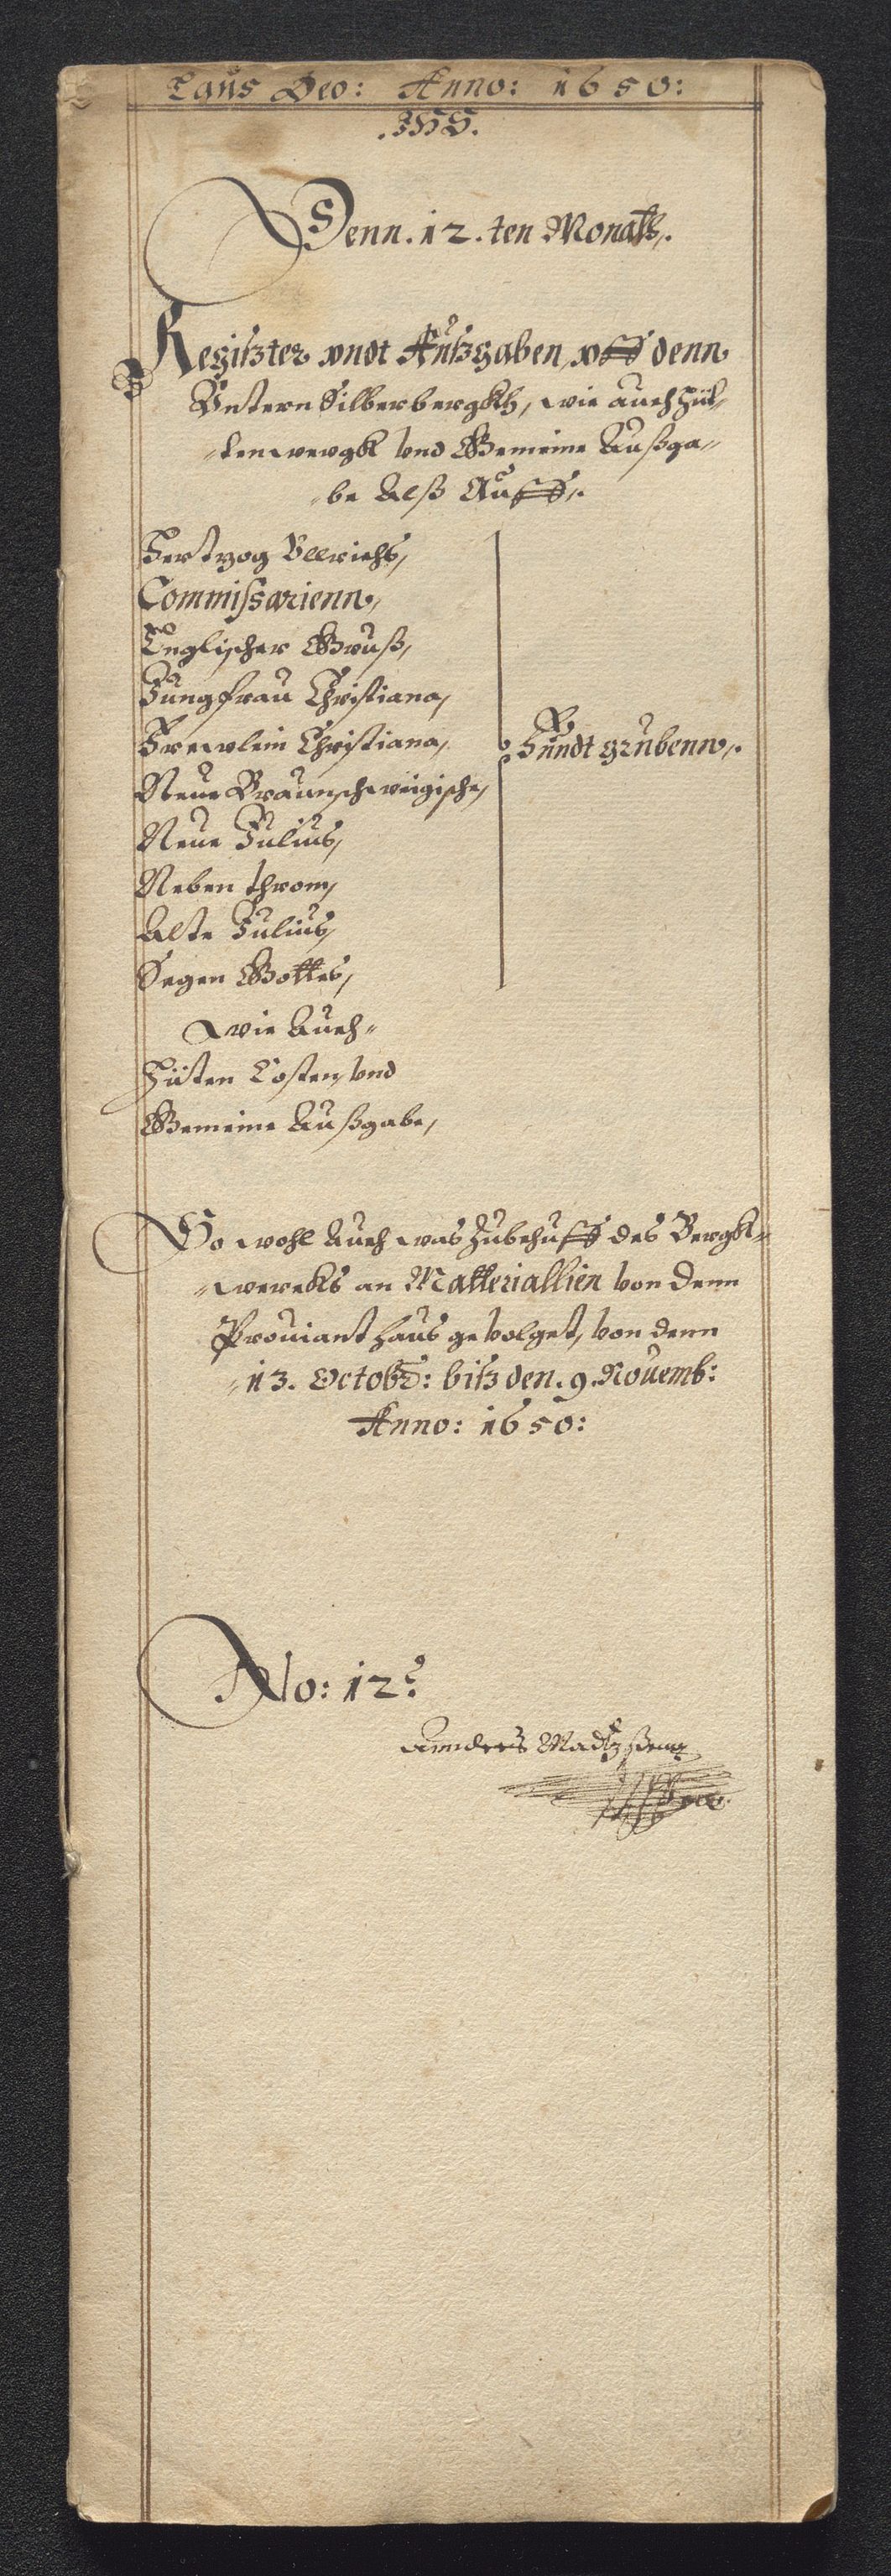 Laus Deo: Anno: 1650:
.JHS.
Denn. 12. ten Monatts.
Regißter vndt Außgaben, vff denn
Vntern Silberbergkh, wie auch Hüt-
-tenwergk vnd Gemeine Außga-
-be Alß Auff.
Hertzog Vlrichs,
Commißarienn,
Englischer Gruß,
Jungfrau Christiana,
Frewlein Christiana,
Neue Braunschweigische,
Neue Julius,
Neben throm,
Alte Julius,
Segen Gottes,
Fundtgrubenn.
Wie Auch-
Hüten Costen, vnd
Gemeine Außgabe,
So wohl Auch was Zubehuff des Bergk-
-wercks an Matteriallien von denn
Prouiant Haus gevolget, von denn
-13. Octob: biß den. 9. Nouemb:
Anno: 1650:
No: 12.
Anders Madtzßenn